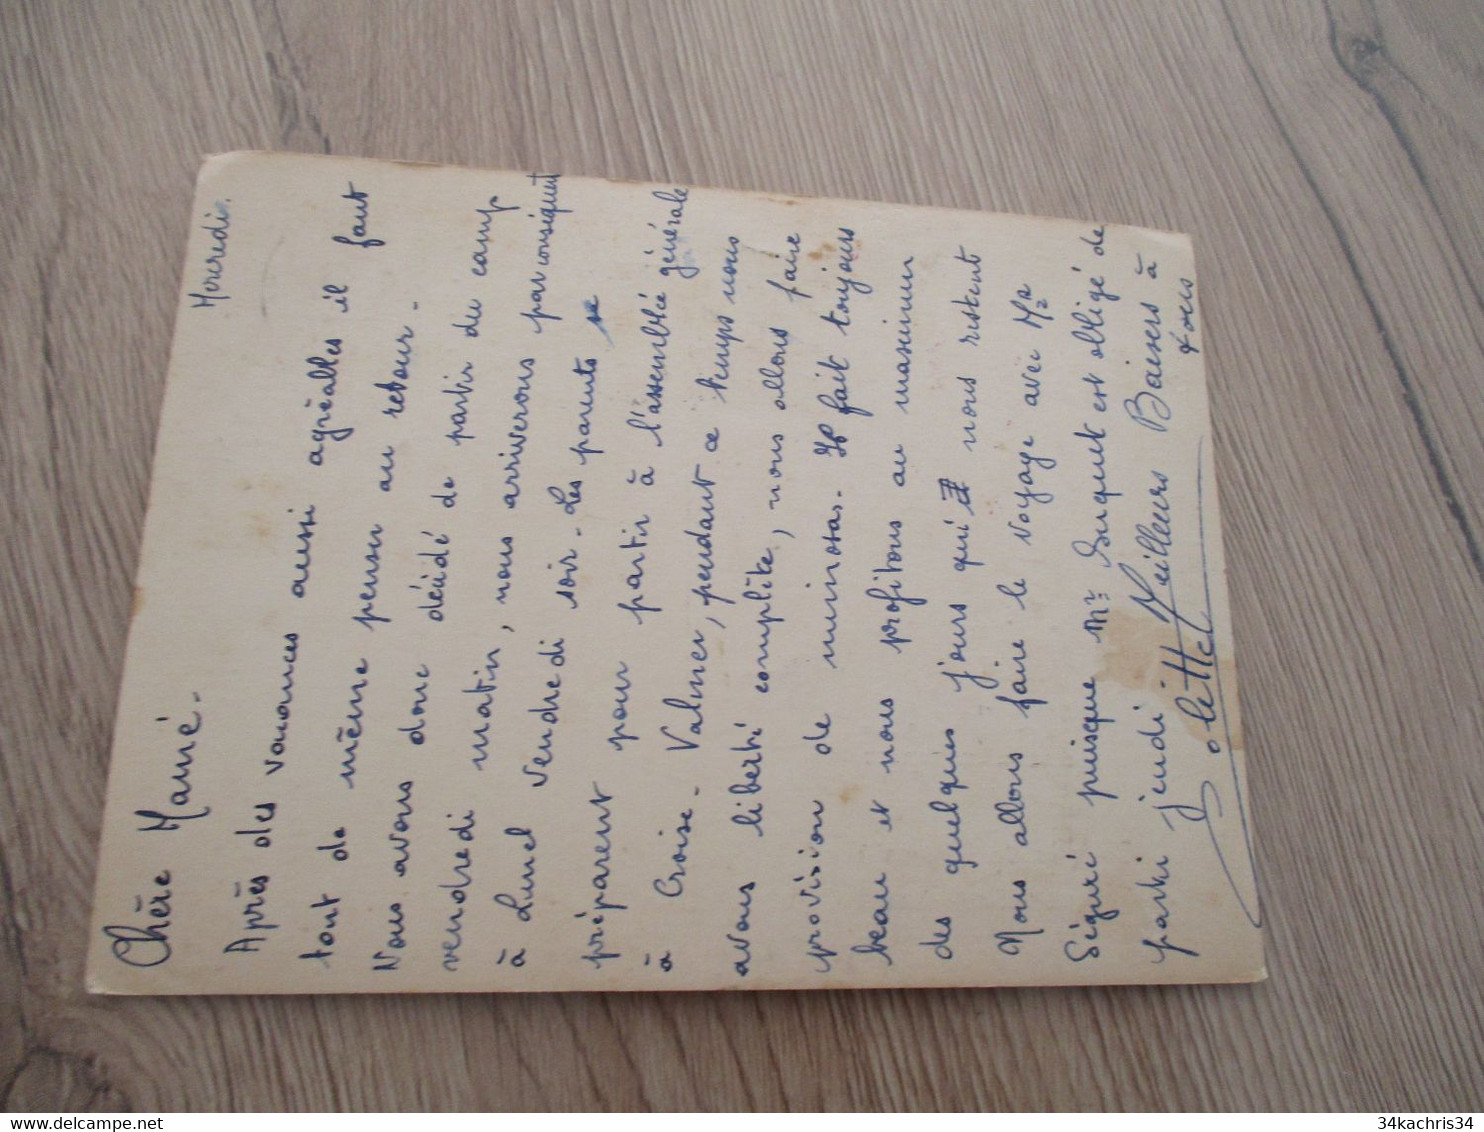 Mercredi.
Chère Mamé.
Après des vacances aussi agréables il faut
tout de même penser au retour.
Nous avons donc décidé de partir du camp
vendredi matin, nous arriverons par conséquent
à Lunel vendredi soir. Les parents se
préparent pour partir à l'assemblée générale
à Croise. Valmer, pendant ce temps nous
avons liberté complète, nous allons faire
provision de mimosas. Il fait toujours
beau et nous profitons au maximum
des quelques jours qui nous restent
Nous allons faire le voyage avec Mr
Séguré puisque Mr Suquet est obligé de
partir jeudi Meilleurs Baisers à
tous
Colette
www.delcampe.net
34kachris34